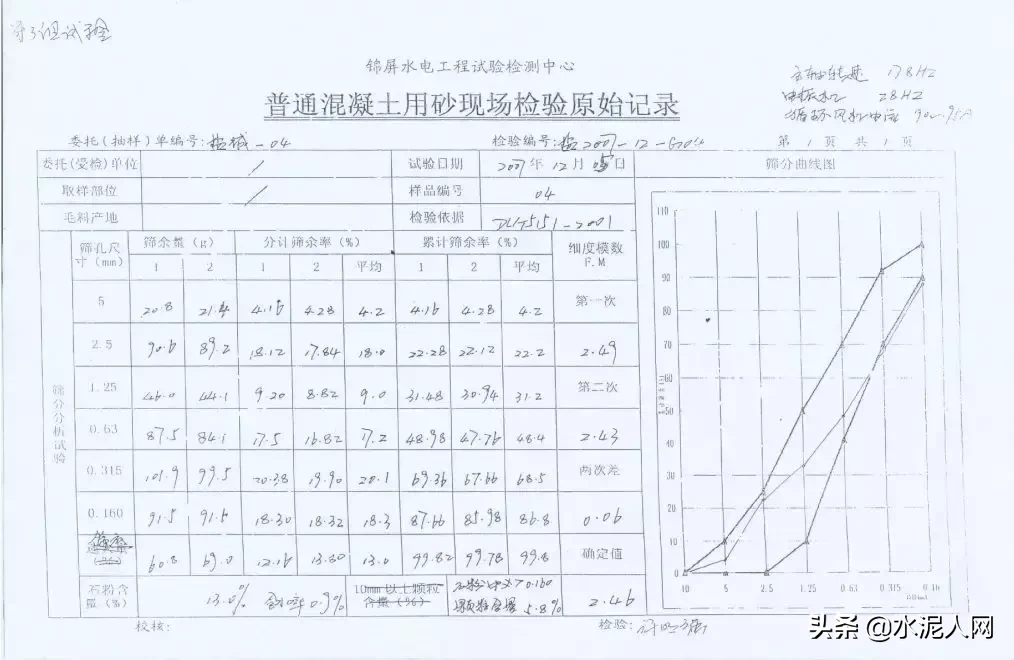 第3组试验
锦屏水电工程试验检测中心
普通混凝土用砂现场检验原始记录
主轴转速 178HZ
28HZ
委托(抽样)单编号: -04 检验编号: 2007-12-G04 第 1 页 共 1 页
委托(受检)单位 / 试验日期 2007年12月05日 筛分曲线图
取样部位 / 样品编号 04
毛料产地 检验依据 DL/T5151-2001
筛分分析试验
筛孔尺寸(mm) 筛余量(g) 分计筛余率(%) 累计筛余率(%) 细度模数 F.M
1 2 1 2 平均 1 2 平均
5 20.8 21.4 4.16 4.28 4.2 4.16 4.28 4.2 第一次
2.5 90.6 89.2 18.12 17.84 18.0 22.28 22.12 22.2 2.49
1.25 46.0 44.1 9.20 8.82 9.0 31.48 30.94 31.2 第二次
0.63 87.5 84.1 17.5 16.82 17.2 48.98 47.76 48.4 2.43
0.315 101.9 99.5 20.38 19.90 20.1 69.36 67.66 68.5 两次差
0.160 91.5 91.6 18.30 18.32 18.3 87.66 85.98 86.8 0.06
60.8 69.0 12.16 13.80 13.0 99.82 99.78 99.8 确定值
石粉含量(%) 13.0% 含水率0.9% 10mm以上颗粒含量(%) 石粉中大于0.160颗粒含量5.8% 2.46
校核: 检验:
110
100
90
80
70
60
50
40
30
20
10
0
10 5 2.5 1.25 0.63 0.315 0.16
头条 @水泥人网